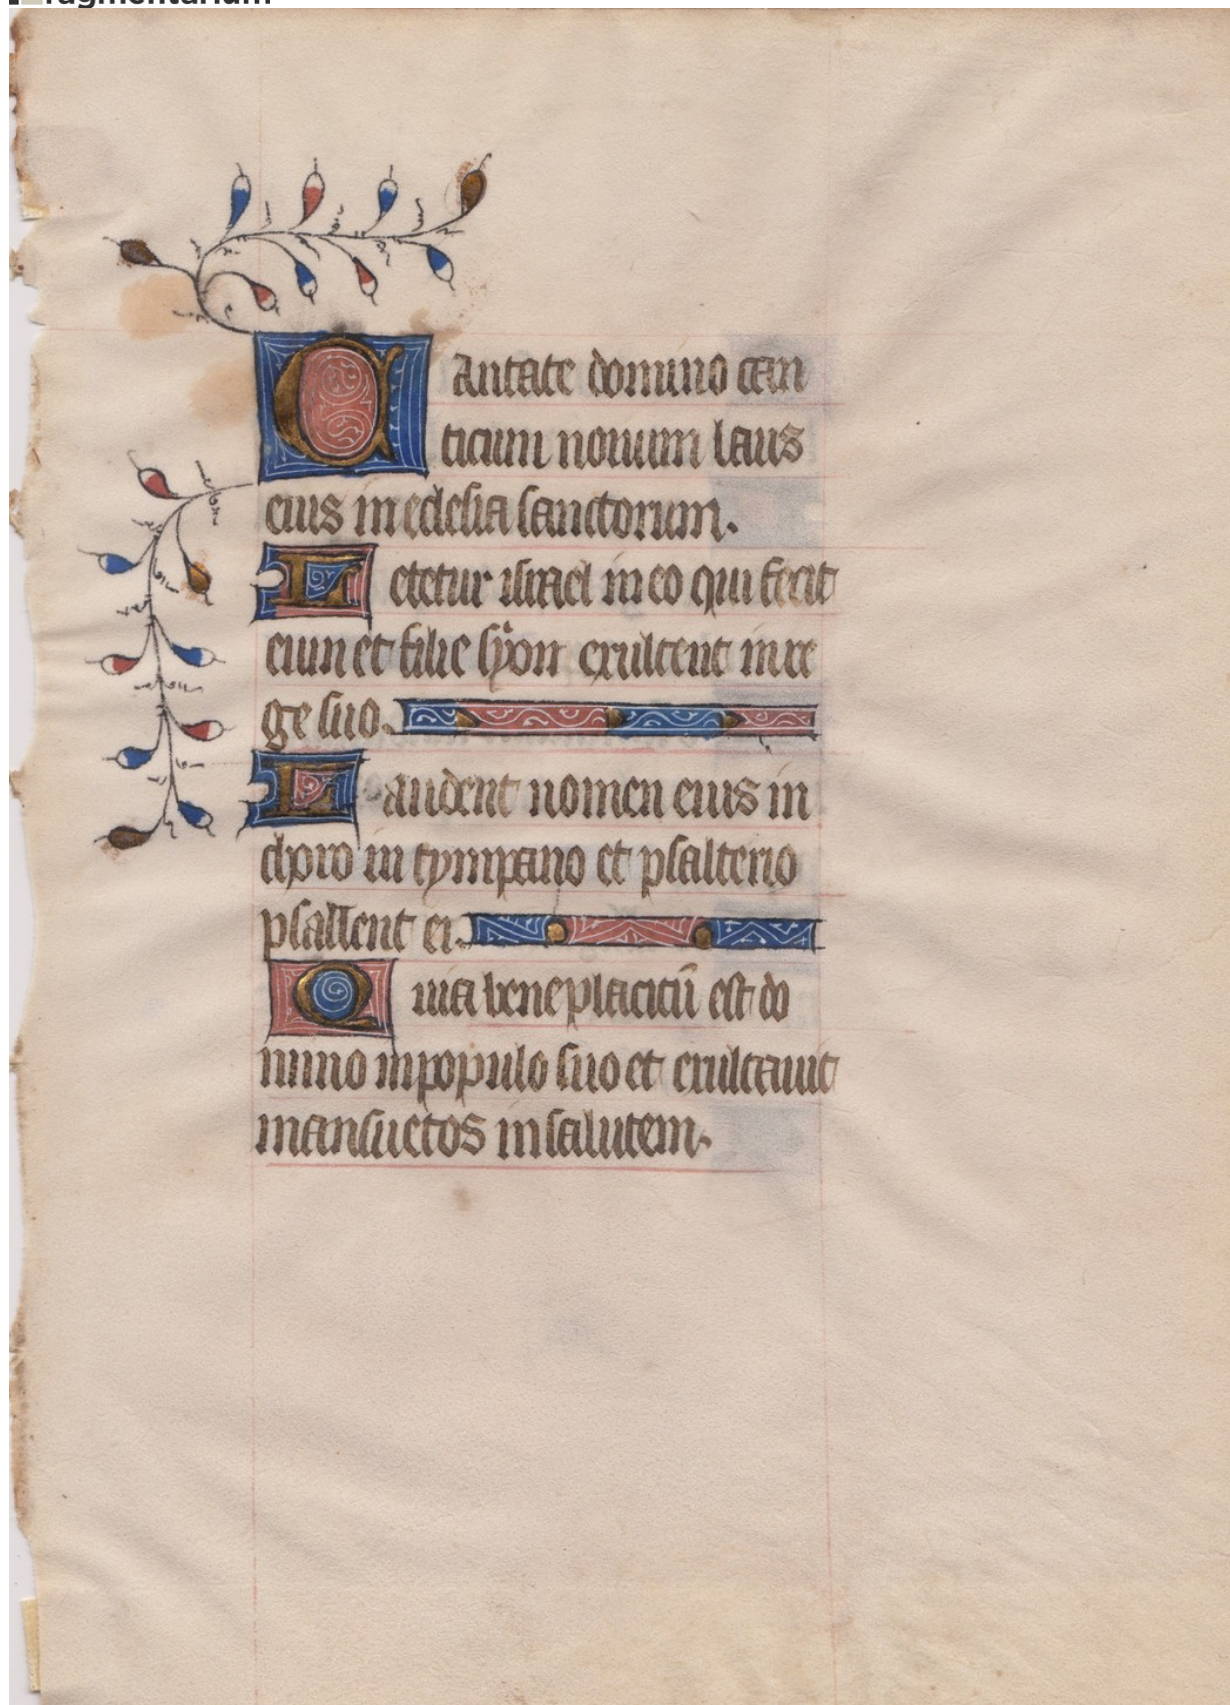 Fragmentarium
Cantate domino can
ticum nouum laus
eius in ecclesia sanctorum.
Letetur israel in eo qui fecit
eum et filie syon exultent in re
ge suo.
Laudent nomen eius in
choro in tympano et psalterio
psallent ei.
Quia beneplacitū est do
mino in populo suo et exultauit
mansuetos in salutem.